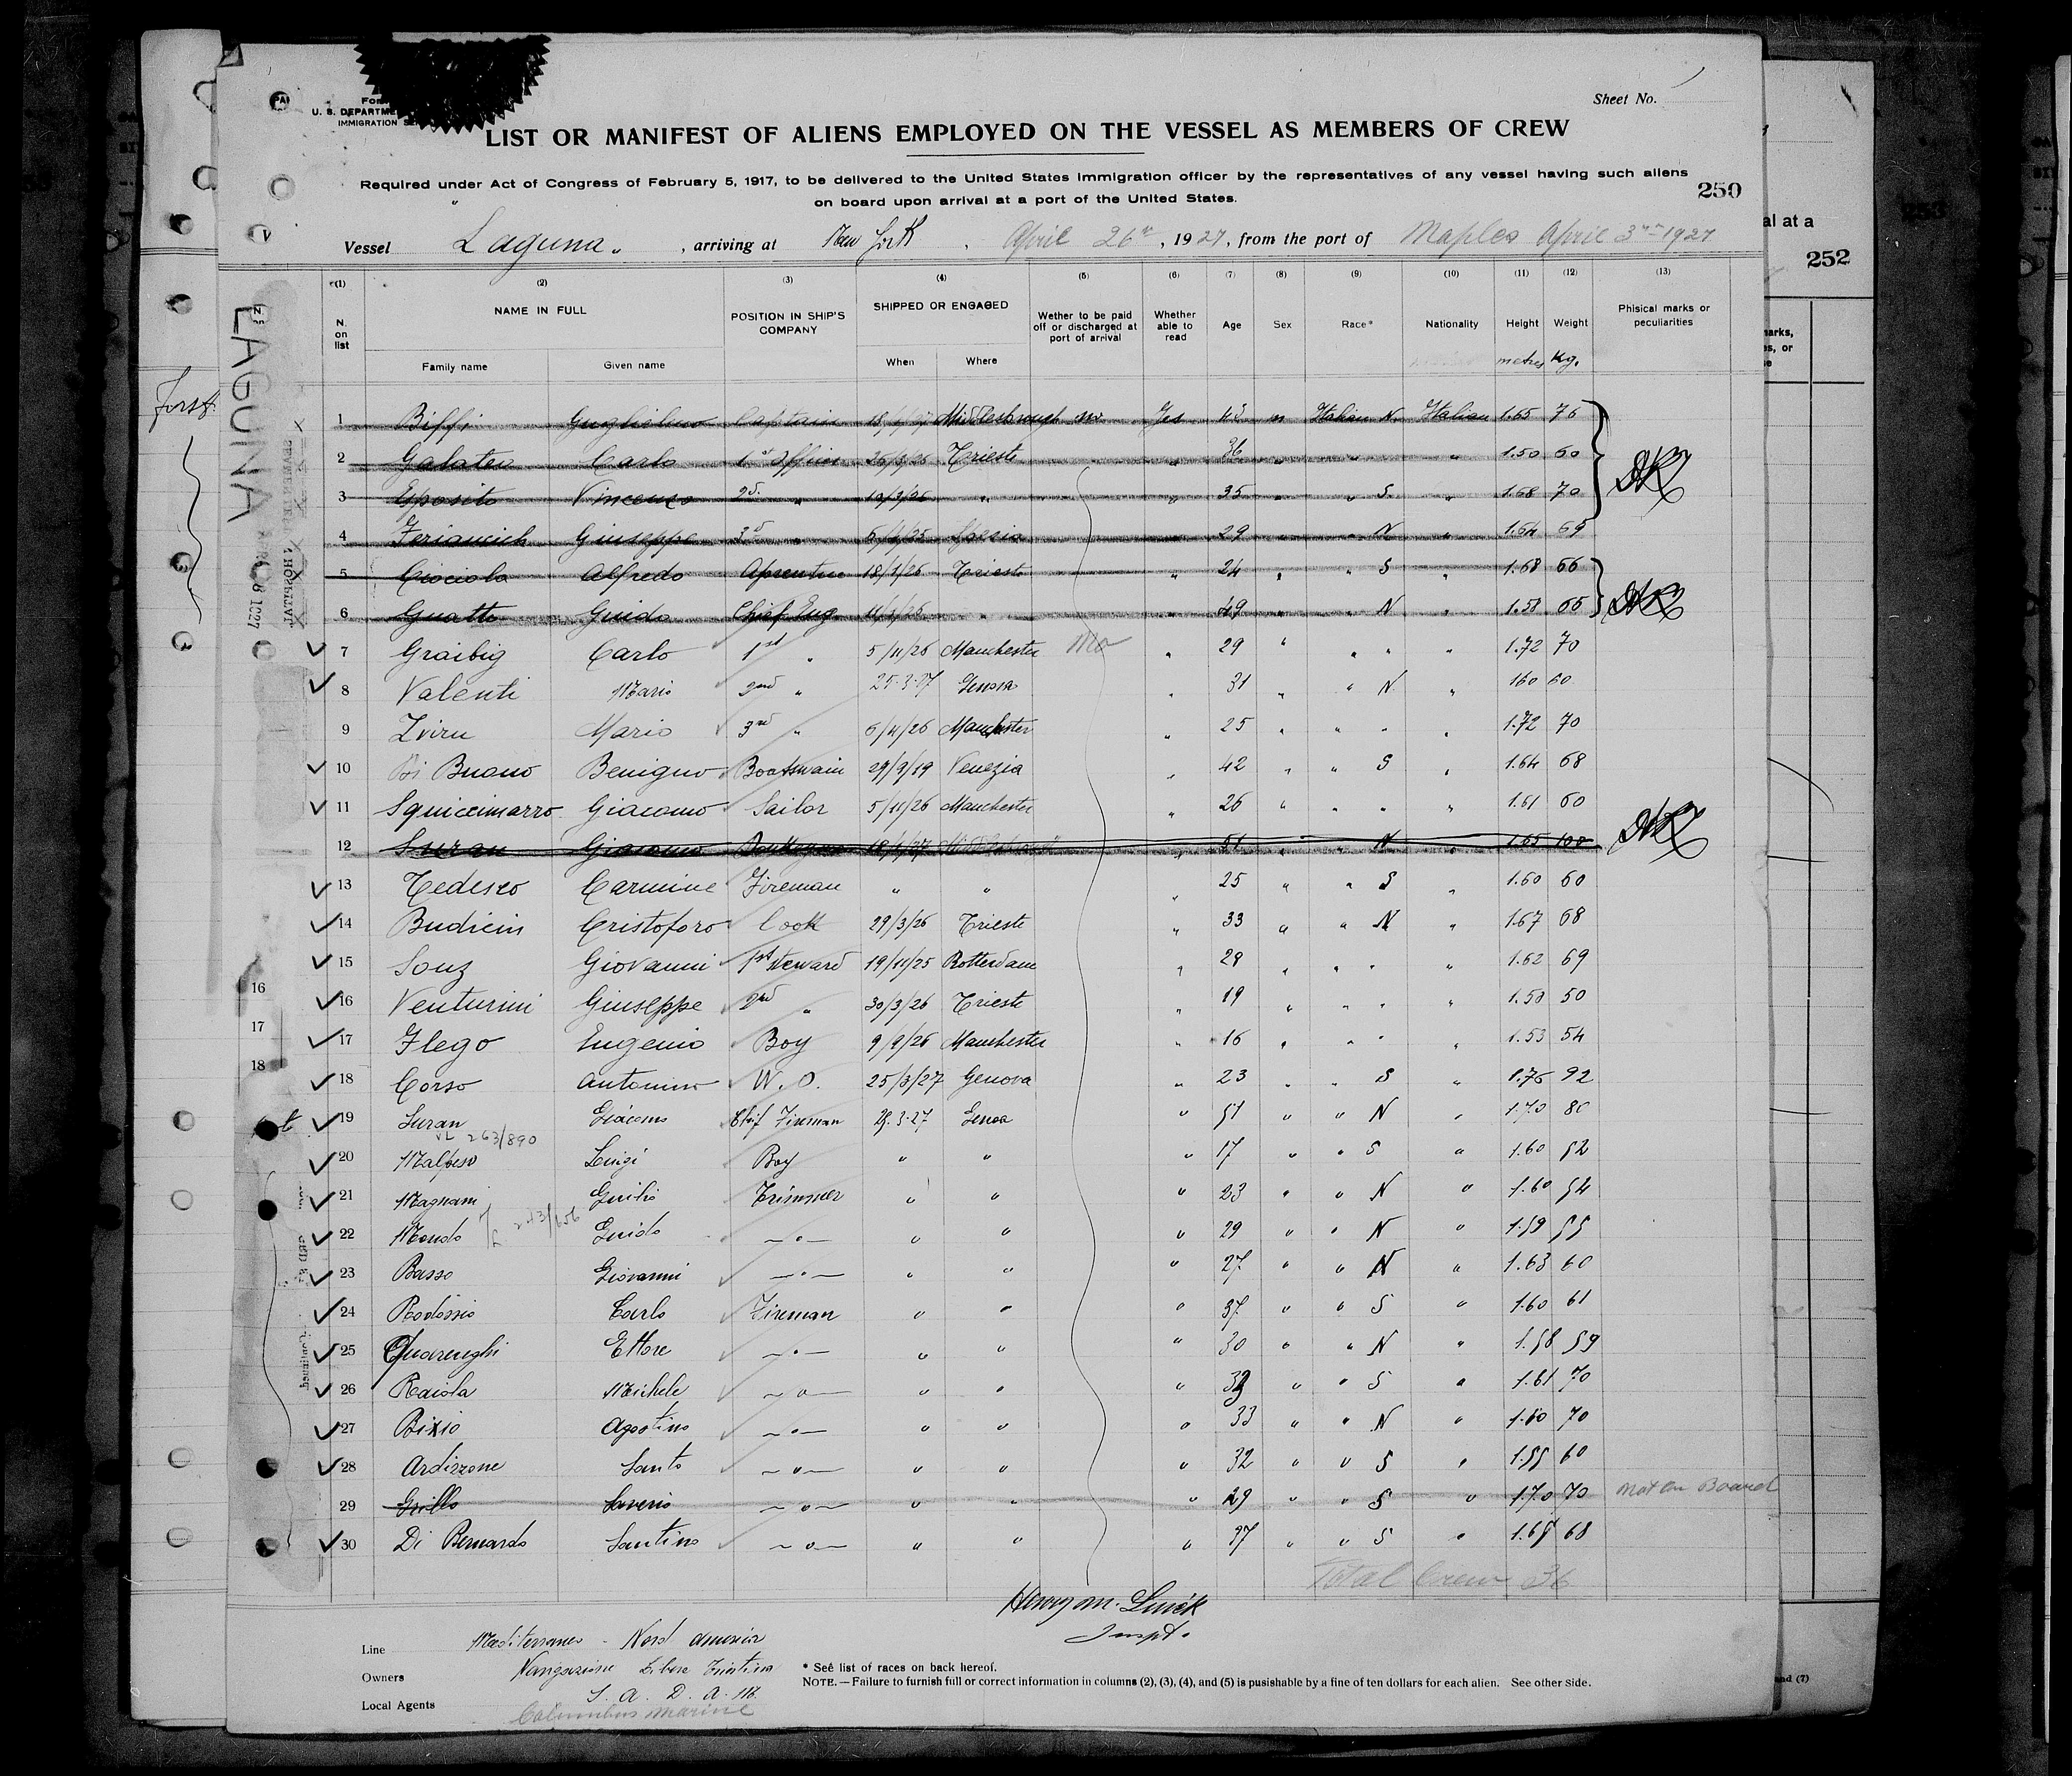 Sheet No.
U. S. DEPARTME
IMMIGRATION SE
LIST OR MANIFEST OF ALIENS EMPLOYED ON THE VESSEL AS MEMBERS OF CREW
Required under Act of Congress of February 5, 1917, to be delivered to the United States Immigration officer by the representatives of any vessel having such aliens
on board upon arrival at a port of the United States.
250
Vessel Laguna, arriving at New York, April 26th, 1927, from the port of Naples April 3rd 1927
al at a
252
(1) (2) (3) (4) (5) (6) (7) (8) (9) (10) (11) (12) (13)
N. on list NAME IN FULL POSITION IN SHIP'S COMPANY SHIPPED OR ENGAGED Wether to be paid off or discharged at port of arrival Whether able to read Age Sex Race* Nationality Height Weight Phisical marks or peculiarities
Family name Given name When Where metres Kg.
LAGUNA
First
1 Biffi Guglielmo Captain Middlesbrough no Yes 43 m Italian N. Italian 1.65 76
2 Galateo Carlo 1st Officer Trieste " 36 " " " 1.50 60
3 Esposito Vincenzo 2d. " " " 35 " " S. " 1.68 70
4 Giuseppe 3d " Spezia " 29 " " N " 1.64 65
5 Ciociola Alfredo Aprentice 18/1/26 Trieste " 24 " " S " 1.68 66
6 Gnatto Guido Chief Eng. " " 49 " " N " 1.58 65
7 Graibig Carlo 1st " 5/11/26 Manchester no " 29 " " " " 1.72 70
8 Valenti Mario 2nd " 25-3-27 Genova " 31 " " N. " 160 60
9 Mario 3rd " Manchester " 25 " " " " 1.72 70
10 Di Buono Benigno Boatswain 29/9/19 Venezia " 42 " " S " 1.64 68
11 Squiccimarro Giacomo Sailor 5/11/26 Manchester " 26 " " " " 1.61 60
12 Suran Giacomo " 51 " " N " 1.65 100
13 Tedesco Carmine Fireman " " " 25 " " S " 1.60 60
14 Budicin Cristoforo Cook 29/3/26 Trieste " 33 " " N " 1.67 68
15 Souz Giovanni 1st Steward 19/11/25 Rotterdam " 28 " " " " 1.62 69
16 Venturini Giuseppe 2nd " 30/3/26 Trieste " 19 " " " " 1.50 50
17 Flego Eugenio Boy 9/9/26 Manchester " 16 " " " " 1.53 54
18 Corso Antonino W. O. 25/3/27 Genova " 23 " " S " 1.76 92
16
17
18
19 Suran Giacomo Chif Fireman 29.3.27 Genoa " 51 " " N " 1.70 80
263/890
20 Malfeso Luigi Boy " " " 17 " " S " 1.60 52
21 Magnani Guilio Trimmer " " " 23 " " N " 1.60 54
22 Mondo Guido —"— " " " 29 " " N " 1.59 55
23 Basso Giovanni —"— " " " 27 " " N " 1.63 60
24 Rodossio Carlo Fireman " " " 37 " " S " 1.60 61
25 Quarenghi Ettore —"— " " " 30 " " N " 1.58 59
26 Raiola Michele —"— " " " " " S " 1.61 70
27 Bixio Agostino —"— " " " 33 " " N " 1.60 70
28 Ardizzone Santo —"— " " " 32 " " S " 1.55 60
29 Grillo Saverio —"— " " " 29 " " S " 1.70 70 Not on Board
30 Di Bernardo Santino —"— " " " " " S " 1.68 68
Total Crew 36
Henry M.
Inspt.
Line Mediterraneo - Nord America
Owners Navigazione Libera Triestina
S. A. D. A.
Local Agents Columbus Marine
* See list of races on back hereof.
NOTE. — Failure to furnish full or correct information in columns (2), (3), (4), and (5) is pusishable by a fine of ten dollars for each alien. See other side.
and (7)